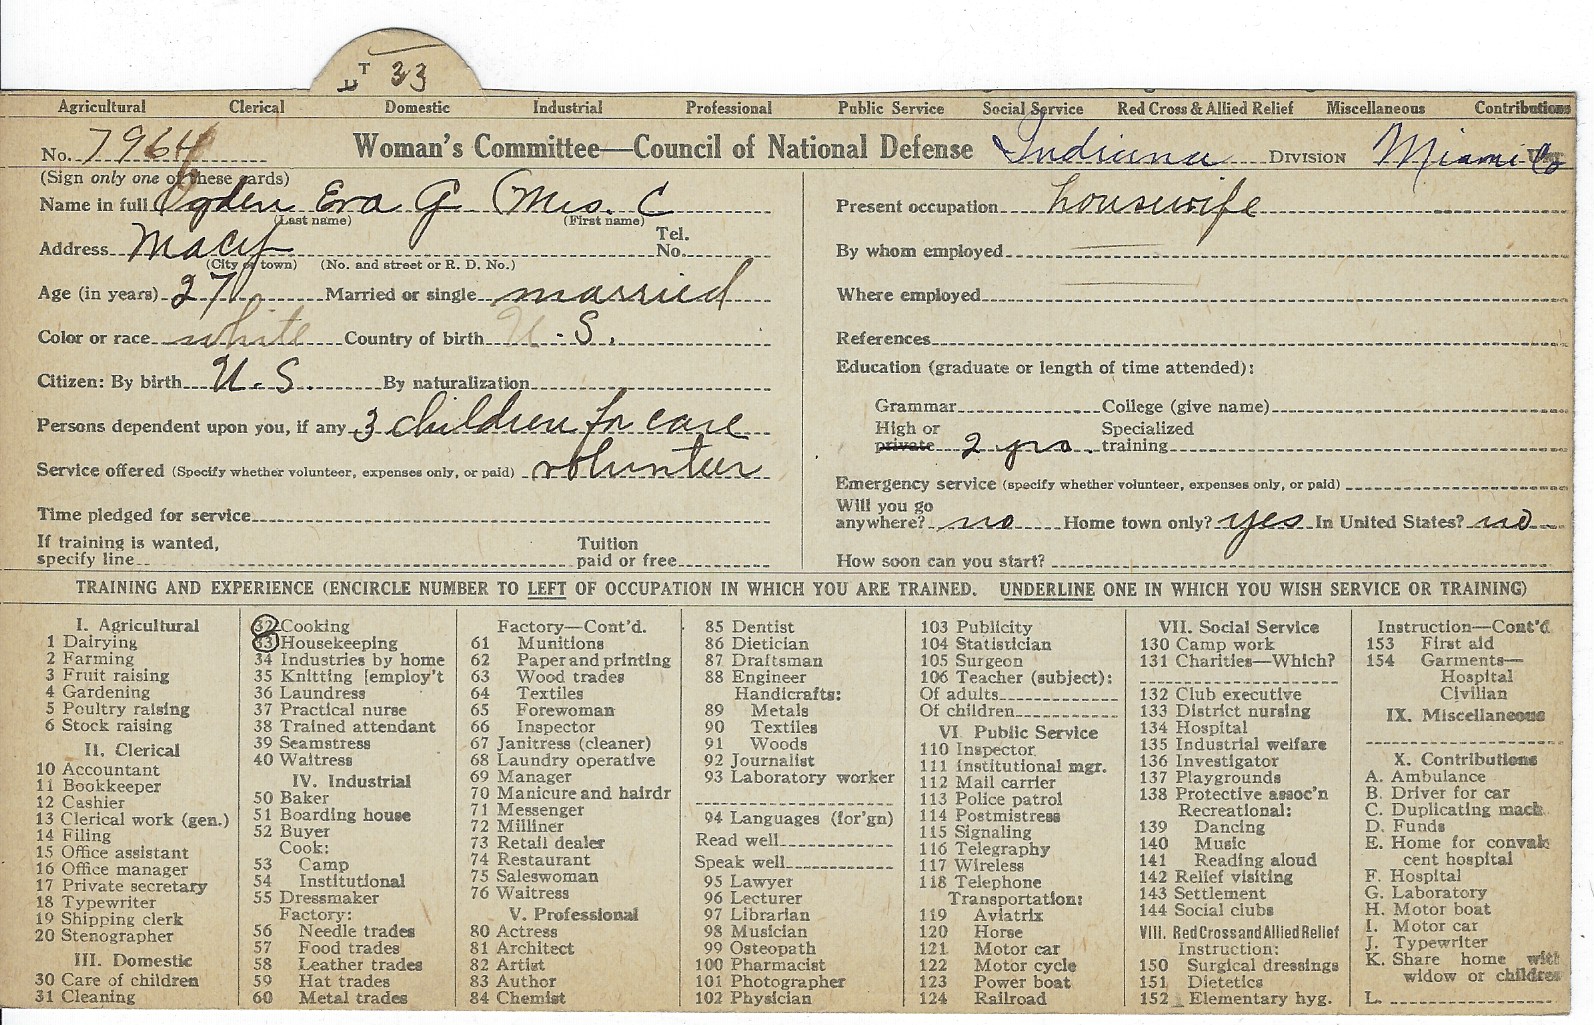 UT 33
Agricultural Clerical Domestic Industrial Professional Public Service Social Service Red Cross & Allied Relief Miscellaneous Contributions
No. 7964 Woman's Committee—Council of National Defense Indiana DIVISION Miami Co
(Sign only one of these cards)
Name in full Ogden Eva G (Mrs. C
(Last name) (First name)
Address Macy Tel. No.
(City or town) (No. and street or R. D. No.)
Age (in years) 27 Married or single married
Color or race white Country of birth U. S.
Citizen: By birth U. S. By naturalization
Persons dependent upon you, if any 3 children for care
Service offered (Specify whether volunteer, expenses only, or paid) volunteer
Time pledged for service
If training is wanted,
specify line Tuition paid or free
Present occupation housewife
By whom employed
Where employed
References
Education (graduate or length of time attended):
Grammar College (give name)
High or private 2 yrs. Specialized training
Emergency service (specify whether volunteer, expenses only, or paid)
Will you go
anywhere? no Home town only? yes In United States? no
How soon can you start?
TRAINING AND EXPERIENCE (ENCIRCLE NUMBER TO LEFT OF OCCUPATION IN WHICH YOU ARE TRAINED. UNDERLINE ONE IN WHICH YOU WISH SERVICE OR TRAINING)
I. Agricultural
1 Dairying
2 Farming
3 Fruit raising
4 Gardening
5 Poultry raising
6 Stock raising
II. Clerical
10 Accountant
11 Bookkeeper
12 Cashier
13 Clerical work (gen.)
14 Filing
15 Office assistant
16 Office manager
17 Private secretary
18 Typewriter
19 Shipping clerk
20 Stenographer
III. Domestic
30 Care of children
31 Cleaning
32 Cooking
33 Housekeeping
34 Industries by home
35 Knitting [employ't
36 Laundress
37 Practical nurse
38 Trained attendant
39 Seamstress
40 Waitress
IV. Industrial
50 Baker
51 Boarding house
52 Buyer
Cook:
53 Camp
54 Institutional
55 Dressmaker
Factory:
56 Needle trades
57 Food trades
58 Leather trades
59 Hat trades
60 Metal trades
Factory—Cont'd.
61 Munitions
62 Paper and printing
63 Wood trades
64 Textiles
65 Forewoman
66 Inspector
67 Janitress (cleaner)
68 Laundry operative
69 Manager
70 Manicure and hairdr
71 Messenger
72 Milliner
73 Retail dealer
74 Restaurant
75 Saleswoman
76 Waitress
V. Professional
80 Actress
81 Architect
82 Artist
83 Author
84 Chemist
85 Dentist
86 Dietician
87 Draftsman
88 Engineer
Handicrafts:
89 Metals
90 Textiles
91 Woods
92 Journalist
93 Laboratory worker
94 Languages (for'gn)
Read well
Speak well
95 Lawyer
96 Lecturer
97 Librarian
98 Musician
99 Osteopath
100 Pharmacist
101 Photographer
102 Physician
103 Publicity
104 Statistician
105 Surgeon
106 Teacher (subject):
Of adults
Of children
VI. Public Service
110 Inspector
111 Institutional mgr.
112 Mail carrier
113 Police patrol
114 Postmistress
115 Signaling
116 Telegraphy
117 Wireless
118 Telephone
Transportation:
119 Aviatrix
120 Horse
121 Motor car
122 Motor cycle
123 Power boat
124 Railroad
VII. Social Service
130 Camp work
131 Charities—Which?
132 Club executive
133 District nursing
134 Hospital
135 Industrial welfare
136 Investigator
137 Playgrounds
138 Protective assoc'n
Recreational:
139 Dancing
140 Music
141 Reading aloud
142 Relief visiting
143 Settlement
144 Social clubs
VIII. Red Cross and Allied Relief
Instruction:
150 Surgical dressings
151 Dietetics
152 Elementary hyg.
Instruction—Cont'd
153 First aid
154 Garments—
Hospital
Civilian
IX. Miscellaneous
X. Contributions
A. Ambulance
B. Driver for car
C. Duplicating mach.
D. Funds
E. Home for convales
cent hospital
F. Hospital
G. Laboratory
H. Motor boat
I. Motor car
J. Typewriter
K. Share home with
widow or children
L.